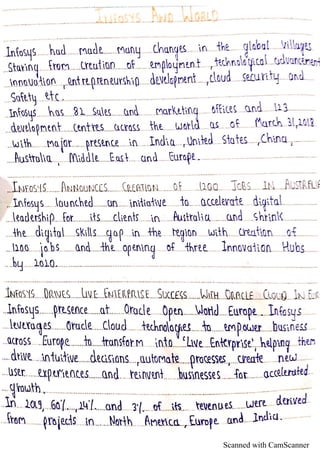 INFOSYS AND WORLD
Infosys had made many changes in the global villages
Staring from creation of employment, technological advancement
innovation, entrepreneurship development, cloud security and
Safety etc.
Infosys has 82 Sales and marketing offices and 123
development centres across the world as of March 31,2018
with major presence in India, United States, China,
Australia, Middle East and Europe.
INFOSYS ANNOUNCES CREATION OF 1200 JOBS IN AUSTRALIA
Infosys launched an initiative to accelerate digital
leadership for its clients in Australia and shrink
the digital skills gap in the region with creation of
1200 jobs and the opening of three Innovation Hubs
by 2020.
INFOSYS DRIVES LIVE ENTERPRISE SUCCESS WITH ORACLE CLOUD IN EUR
Infosys presence at Oracle Open World Europe. Infosys
leverages Oracle Cloud technologies to empower business
across Europe to transform into 'Live Enterprise', helping them
drive intuitive decisions, automate processes, create new
user experiences and reinvent businesses for accelerated
growth.
In 2019, 60%, 24% and 3% of its revenues were derived
from projects in North America, Europe and India.
Scanned with CamScanner